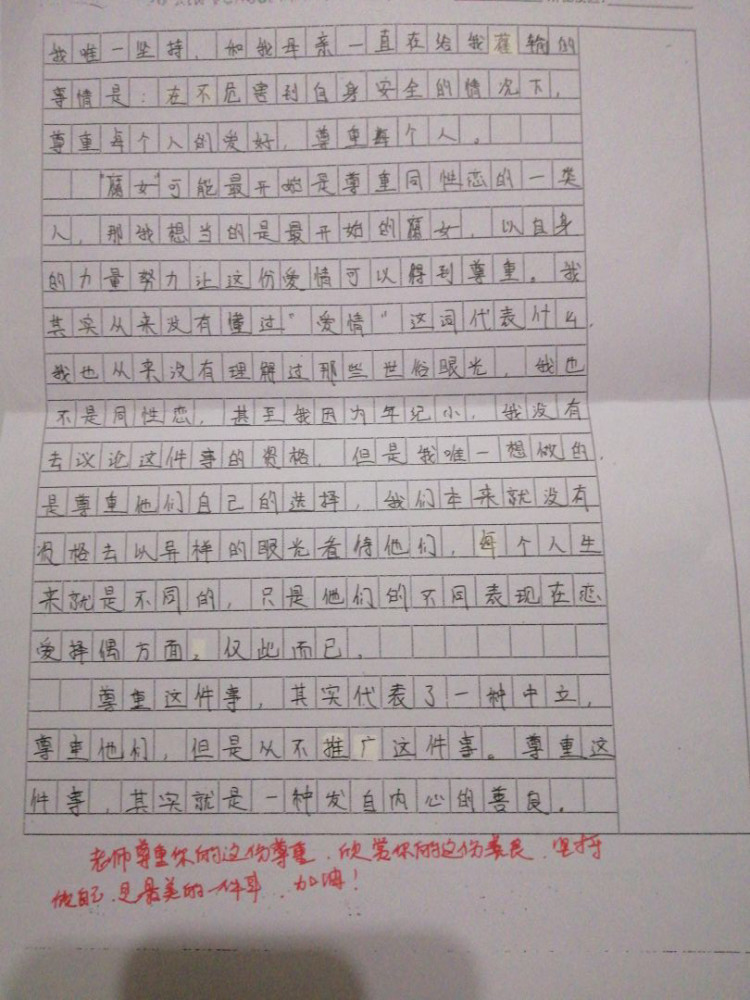 我唯一坚持,和我母亲一直在给我灌输的
事情是:在不危害到自身安全的情况下,
尊重每个人的爱好,尊重每个人。
"腐女"可能最开始是尊重同性恋的一类
人,那我想当的是最开始的腐女,以自身
的力量努力让这份爱情可以得到尊重。我
其实从来没有懂过"爱情"这词代表什么,
我也从来没有理解过那些世俗眼光,我也
不是同性恋,甚至我因为年纪小,我没有
去议论这件事的资格,但是我唯一想做的,
是尊重他们自己的选择,我们本来就没有
资格去以异样的眼光看待他们,每个人生
来就是不同的,只是他们的不同表现在恋
爱择偶方面,仅此而已。
尊重这件事,其实代表了一种中立,
尊重他们,但是从不推广这件事。尊重这
件事,其实就是一种发自内心的善良。
老师尊重你的这份尊重,欣赏你的这份善良,坚持
做自己,是最美的一件事,加油!